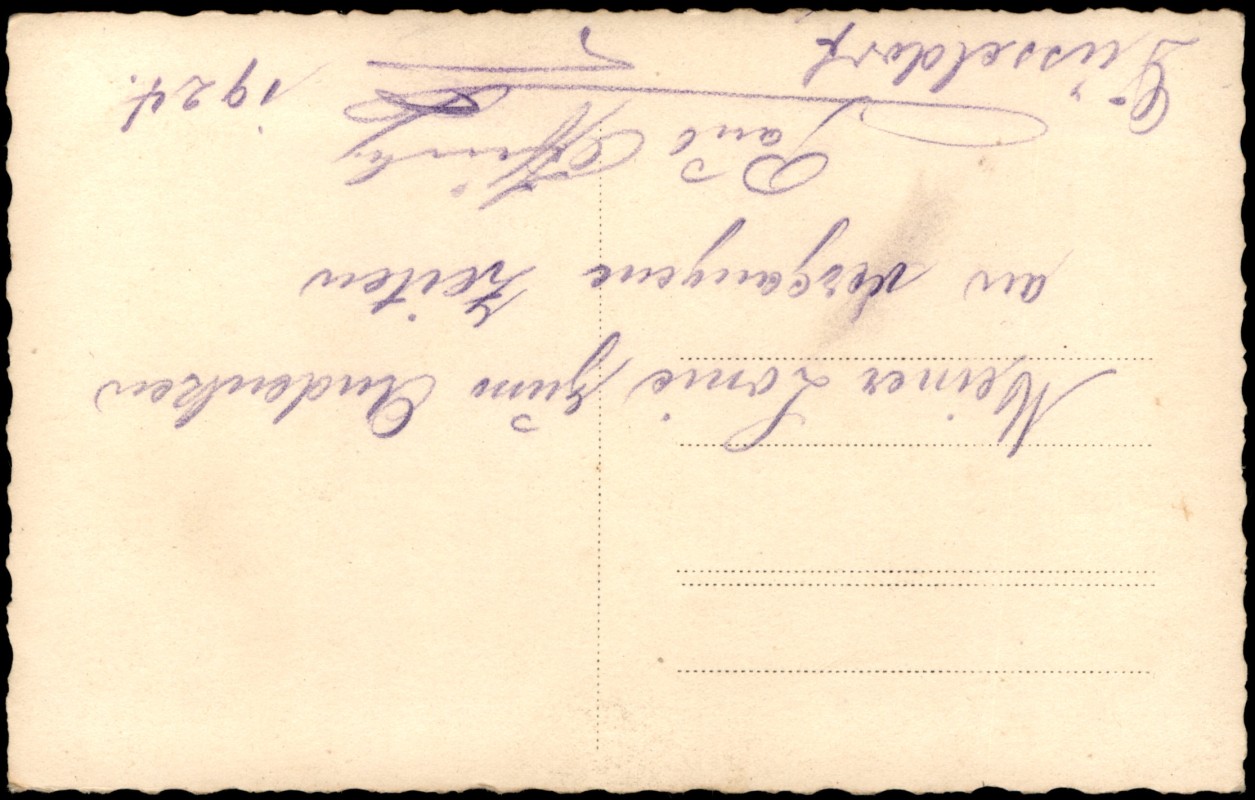 Meiner Lonie zum Andenken
an vergangene Zeiten
Paul
Düsseldorf 1924.